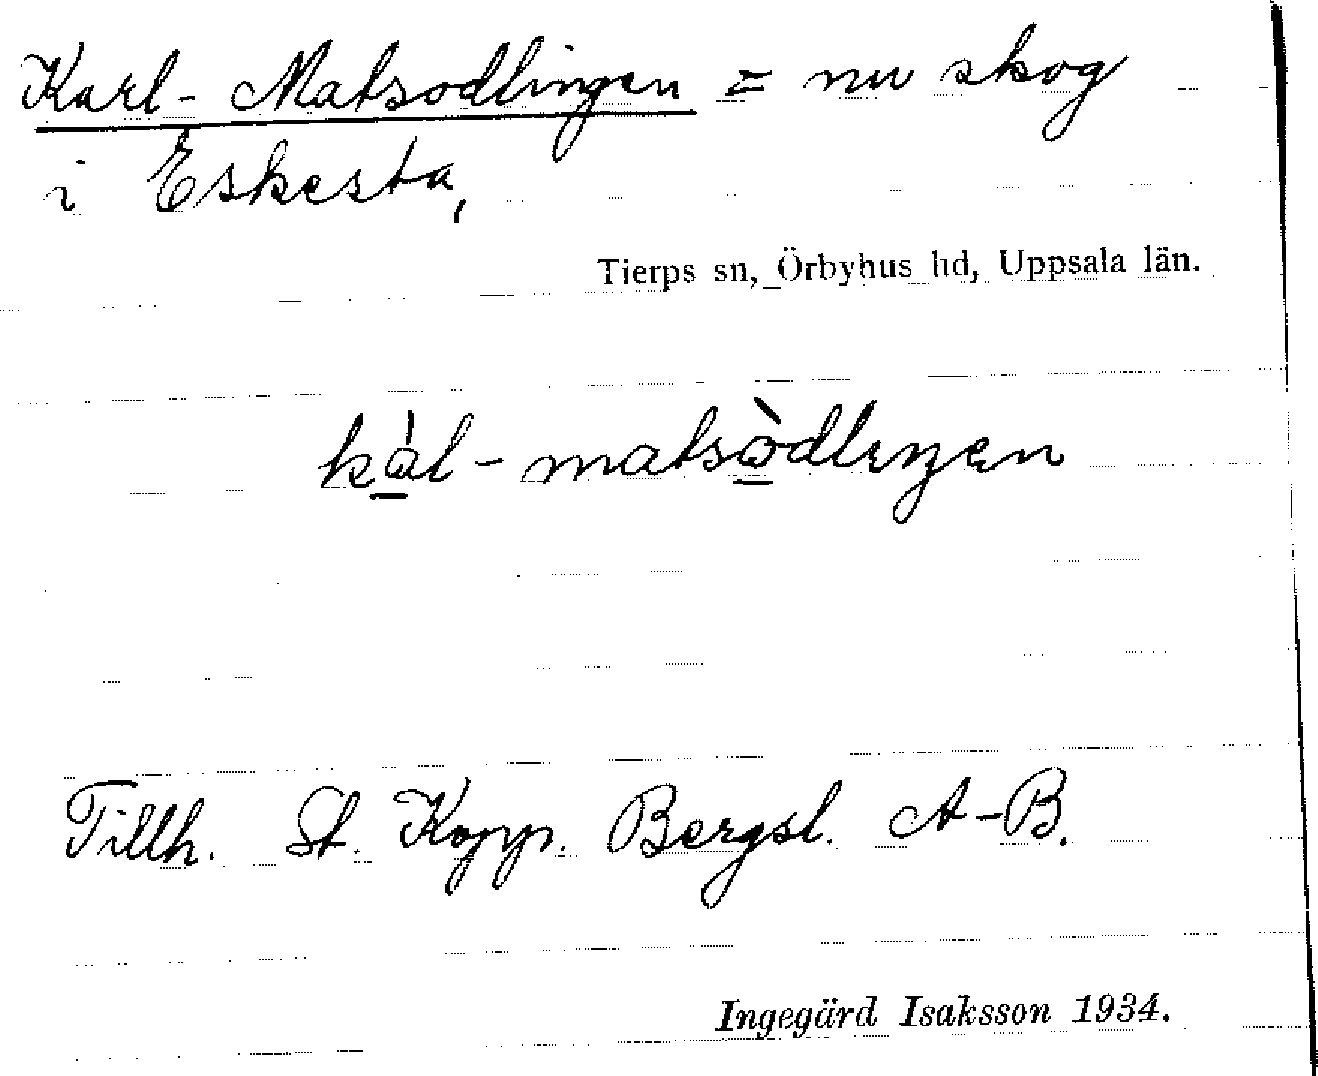 Karl-Matsodlingen = nu skog
i Eskesta,
Tierps sn, Örbyhus hd, Uppsala län.
kàl-matsòdlingen
Tillh. St. Kopp. Bergsl. A-B.
Ingegärd Isaksson 1934.